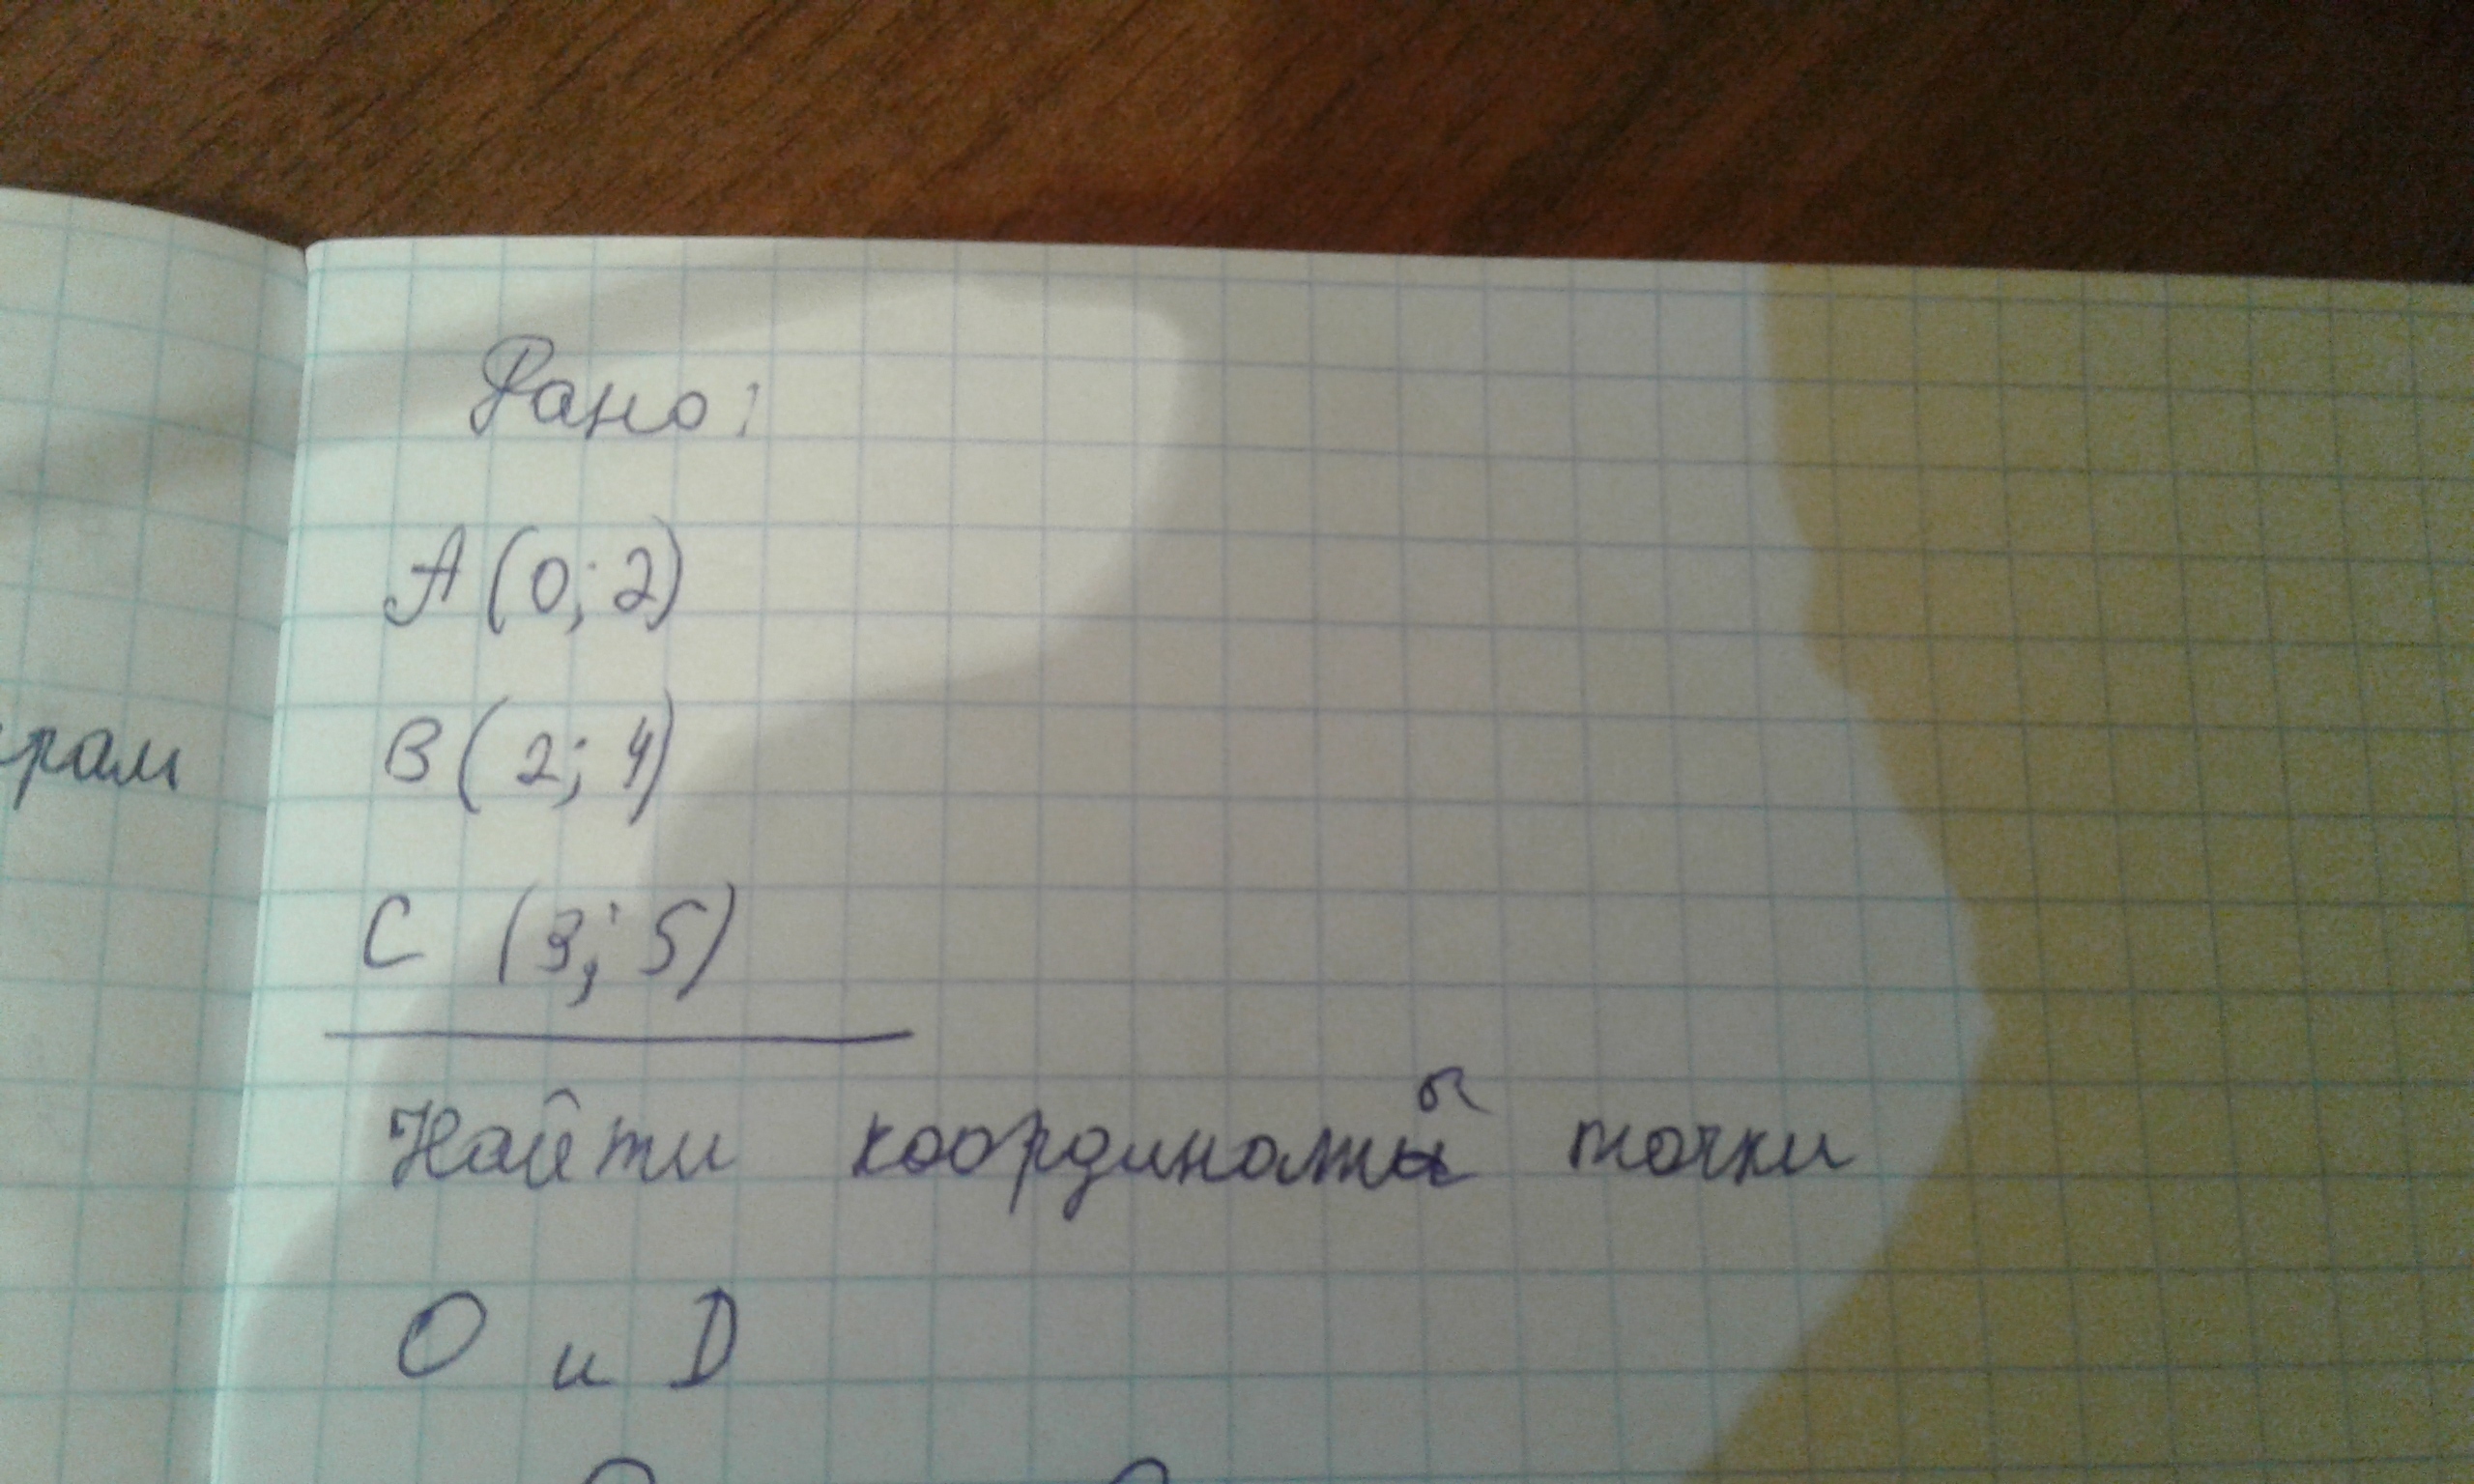 рам
Дано:
A (0; 2)
B ( 2; 4)
C (3; 5)
Найти координаты точки
O и D